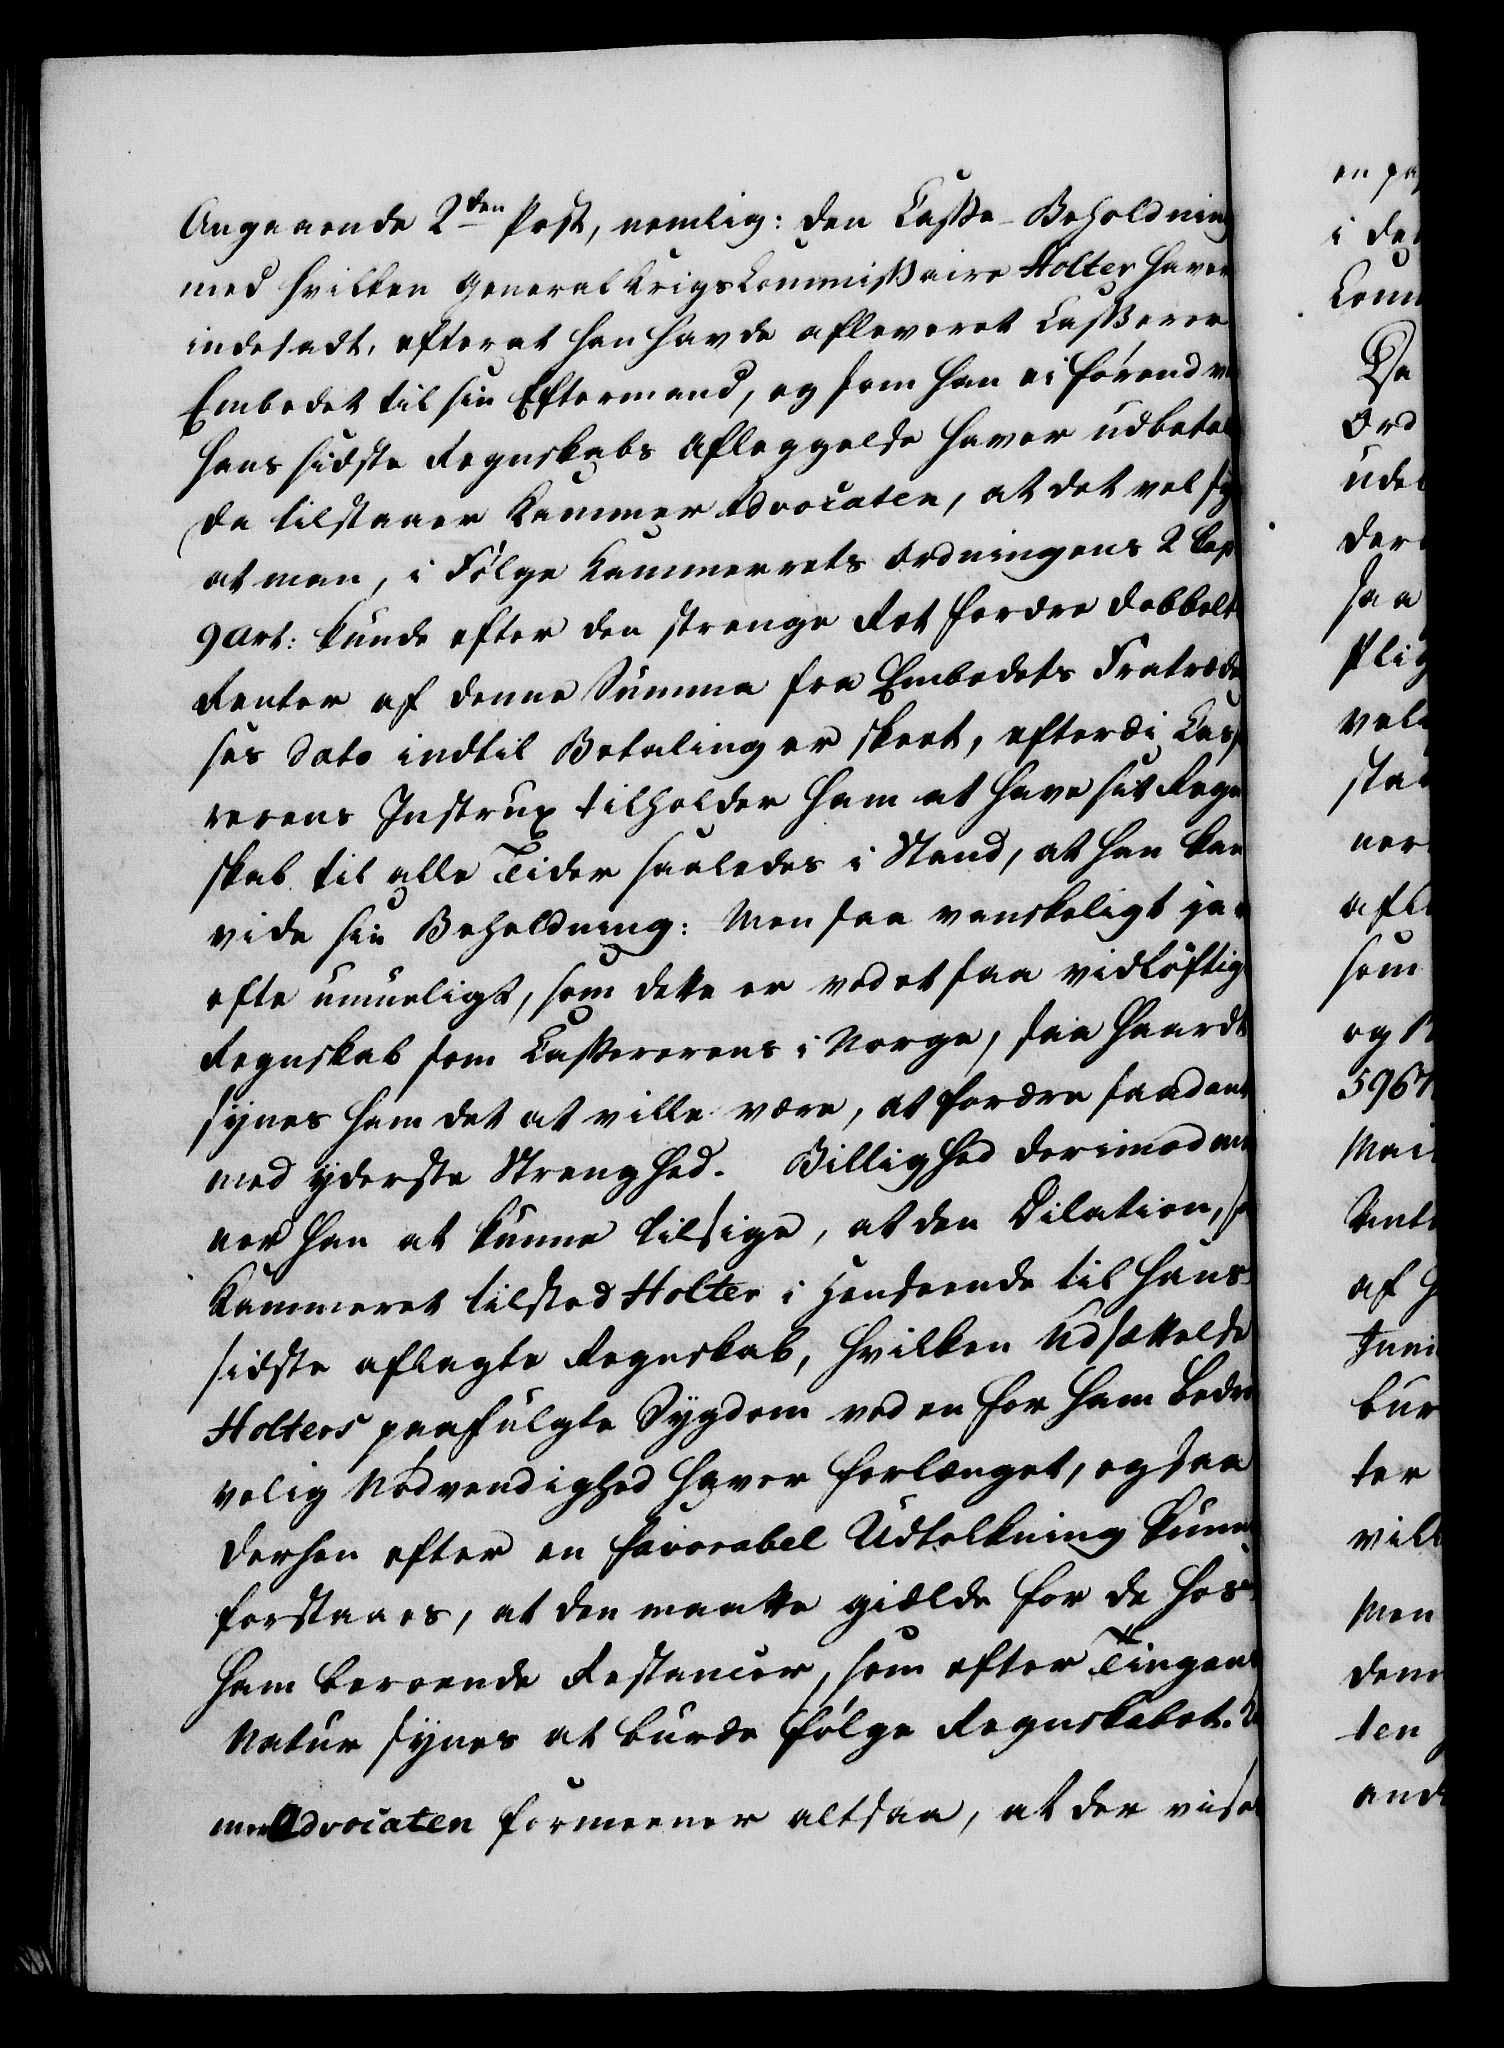 Angaaende 2den Post, nemlig: den Casse-Beholdning
med hvilken GeneralKrigsCommissaire Holter haver
indesadt, efterat han havde afleveret Casserer
Embedet til sin Eftermand, og som han ei förend ve
hans sidste Regnskabs Aflæggelse haver udbetal
da tilstaaer Kammer Advocaten, at det vel sy
at man, i Følge Kammerrets Ordningens 2 Cap
9 Art: kunde efter den strenge Ret fordre dobbelt
Renter af denne Summa fra Embedets Fratræde
ses Dato indtil Betaling er skeet, efterdi Cass
rerens Instrux tilholder ham at have sit Regn
skab til alle Tider saaledes i Stand, at han kan
vide sin Beholdning: Men saa vanskeligt ja
ofte umueligt, som dette er ved et saa vidtløftig
Regnskab som Cassererens i Norge, saa haardt
synes ham det at ville være, at fordre saadant
med yderste Strenghed. Billighed derimod me
ner han at kunne tilsige, at den Dilation, s
Kammeret tilstod Holter i Henseende til hans
sidste aflagte Regnskab, hvilken Udsættelse
Holters paafulgte Sygdom ved en for ham bedrø
velig Nødvendighed haver forlænget, og saa
derhen efter en favorabel Udtolkning kunne
forstaaes, at den maatte gielde for de hos
ham beroende Restancer, som efter Tingens
Natur synes at burde følge Regnskabet.
mer Advocaten formeener altsaa, at der vise
i de
Da
Ord
ude
der
saa
Plig
vel
sta
ner
afl
som
og
5967
Mai
af
Juni
bur
ter
vil
Men
den
ten
and